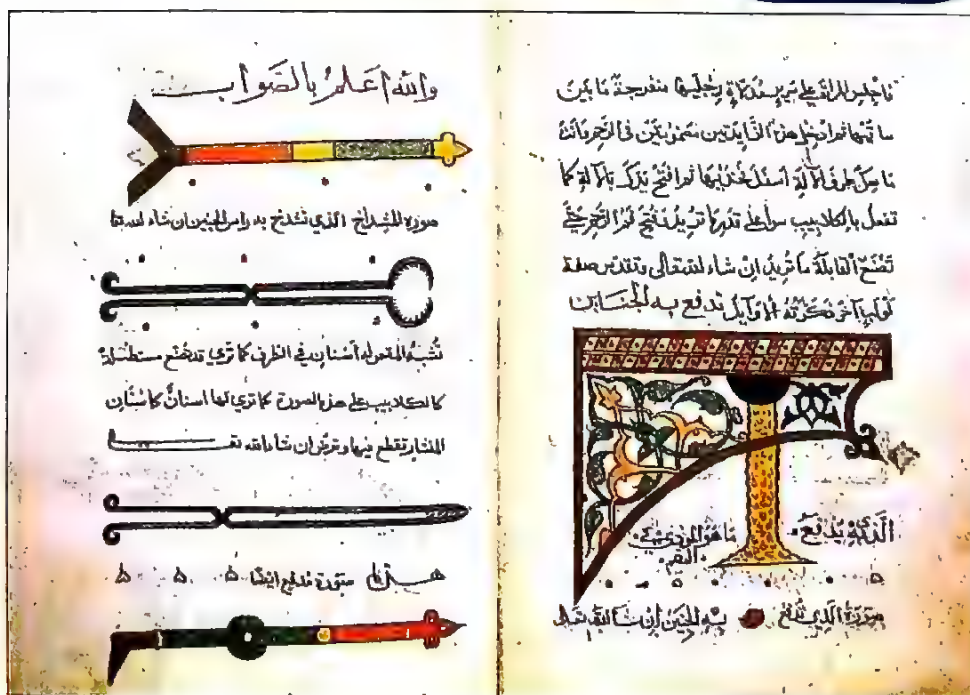 فاجلس المراة على سرير مستندة رجليها منفرجة ما بين
ساقيها ثم ادخل هذه الزايدتين مضمومتين في الرحم وانت
ماسك طرف الالة اسفل فخذيها ثم افتح يدك بالالة كما
تفعل بالكلاليب سوا على قدر ما تريد تفتح فم الرحم حتى
تصنع القابلة ما تريد ان شاء الله تعالى
لولب آخر ذكرته الاوايل تدفع به
الذي يدفع ما هو
صورة الذي تدفع به الجنين ان شاء الله تعالى
والله اعلم بالصواب
صورة المشداخ الذي تشدخ به راس الجنين ان شاء الله تعا
تشبه المقص له اسنان في الطرف كما ترى قد تصنع مستطيلة
كالكلاليب على هذه الصورة كما ترى لها اسنان كاسنان
المنشار تقطع بها وترض ان شاء الله تعـ
صورة مدفع ايضا